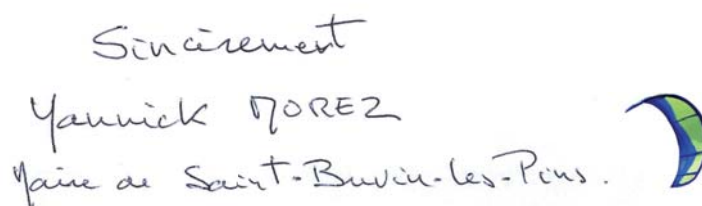 Sincèrement
Yannick MOREZ
Maire de Saint-Brevin-les-Pins.